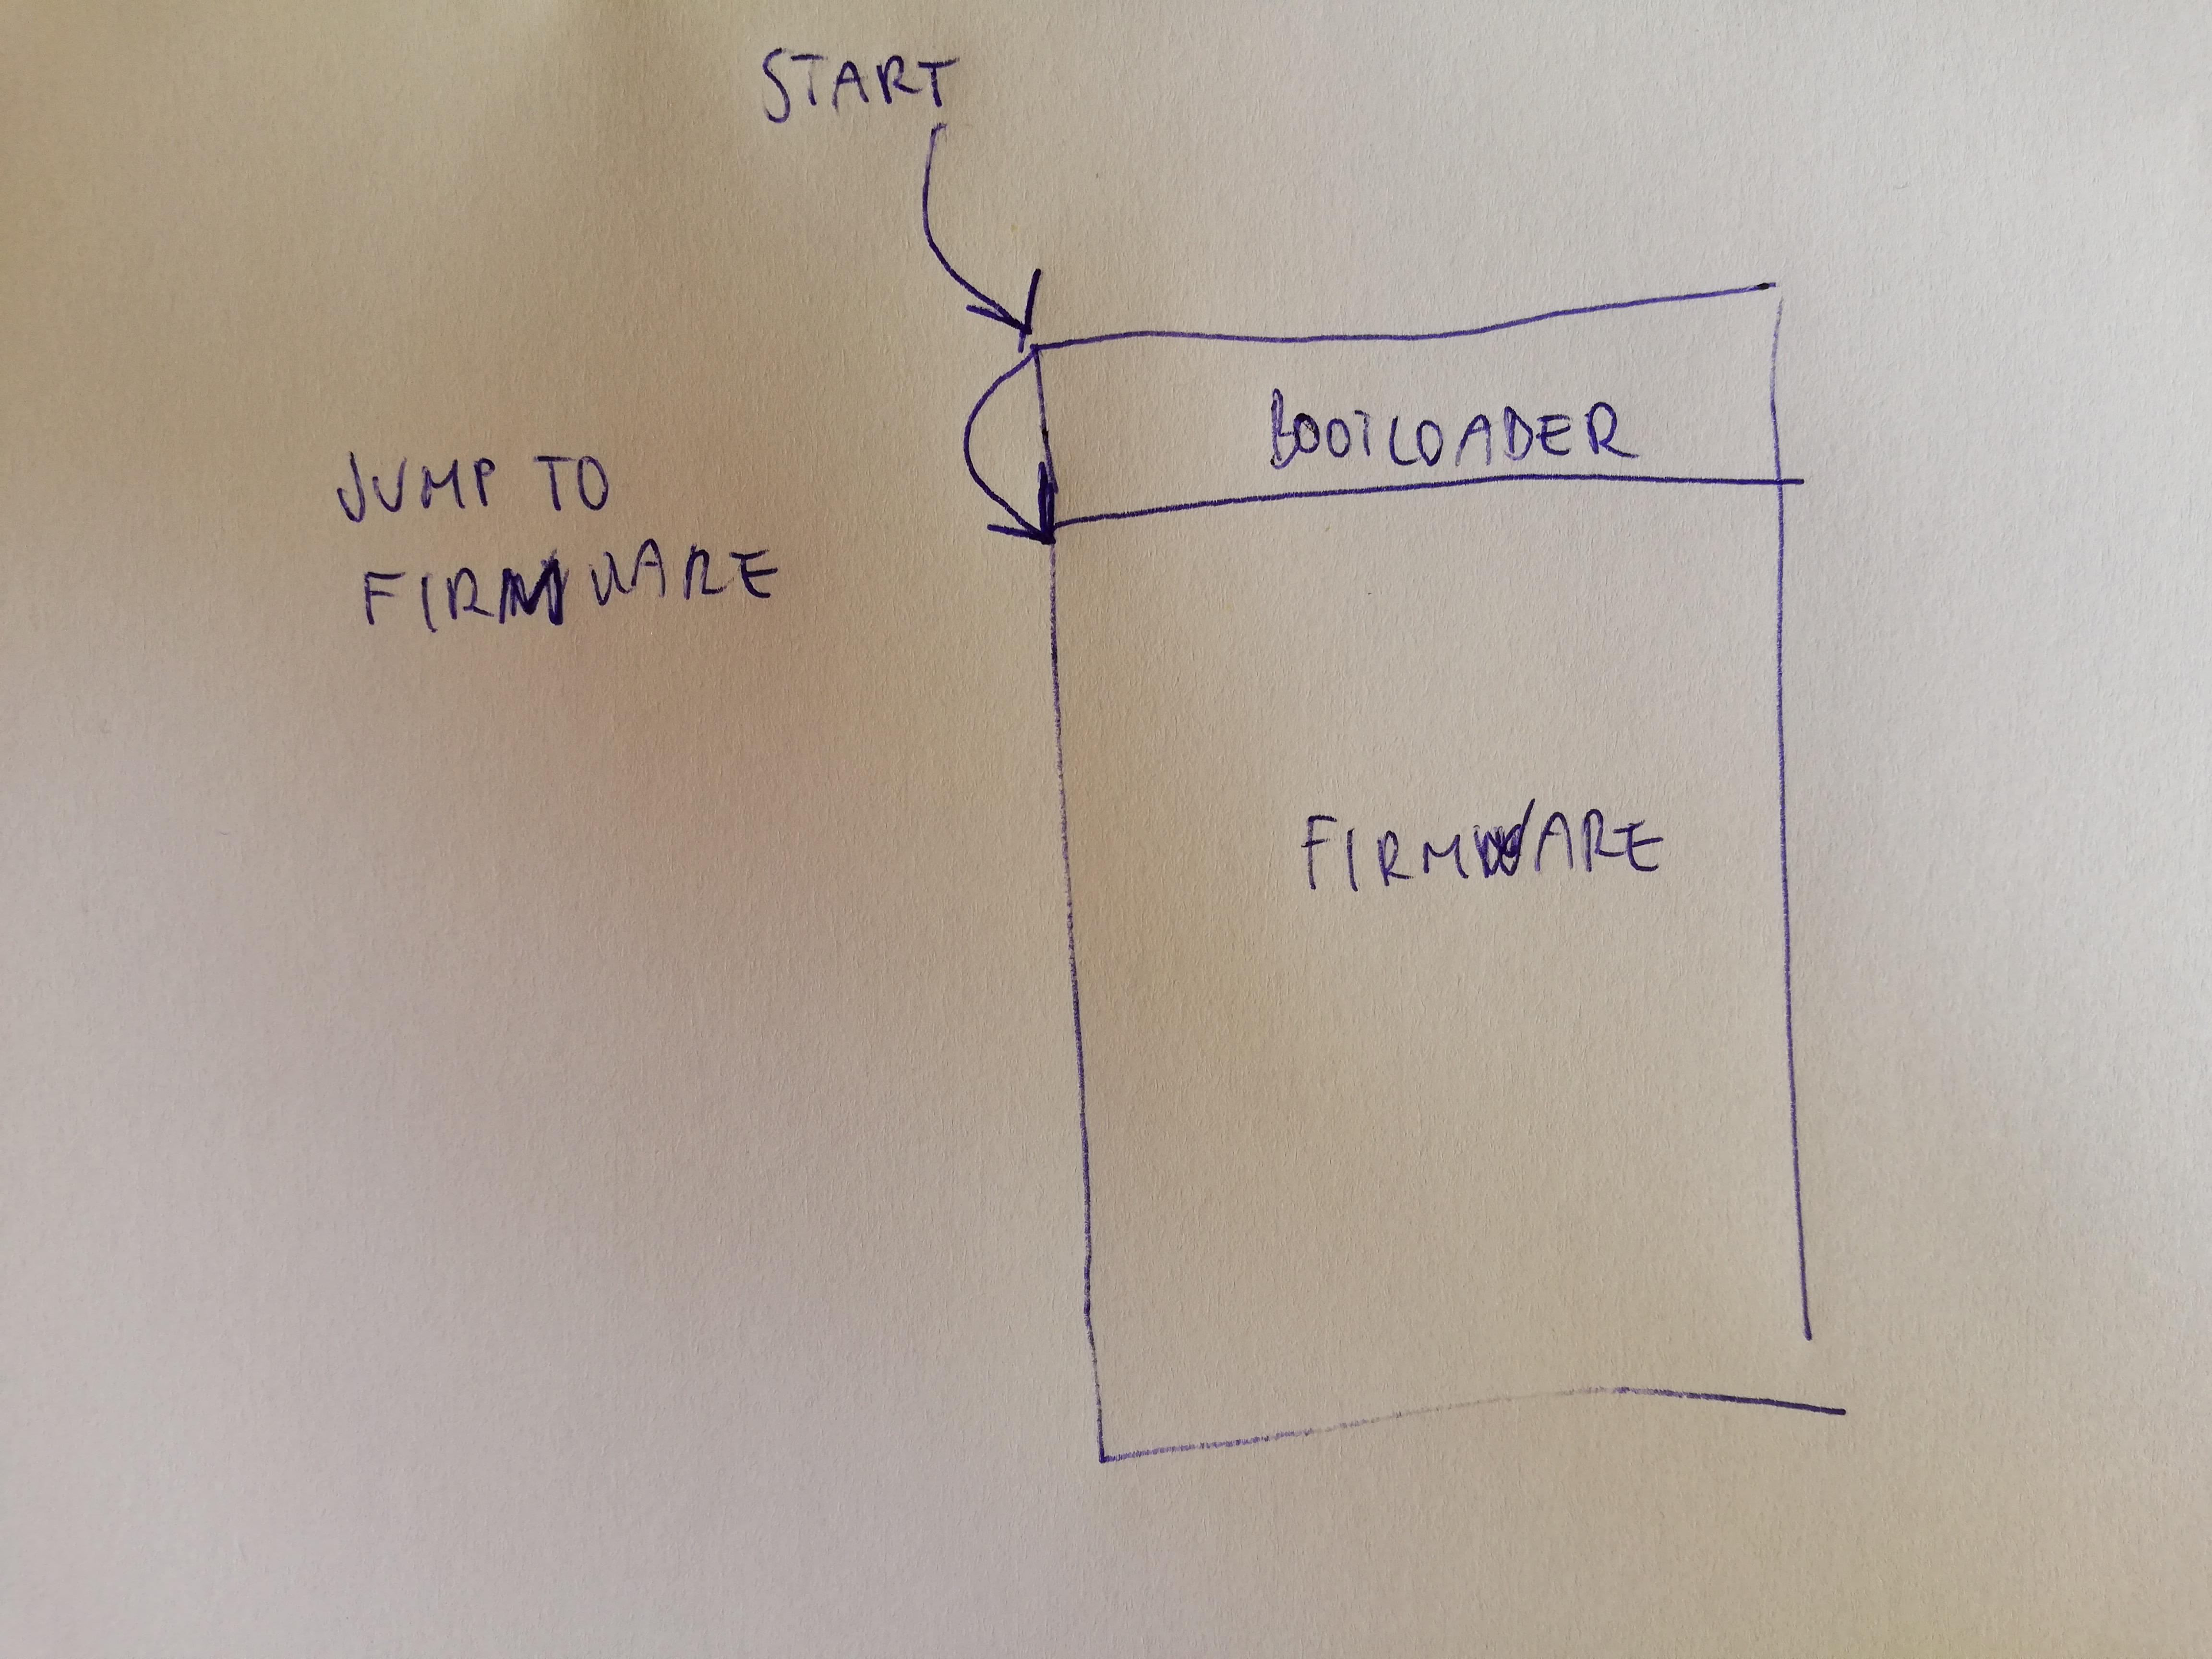 START
BOOTLOADER
JUMP TO
FIRMWARE
FIRMWARE